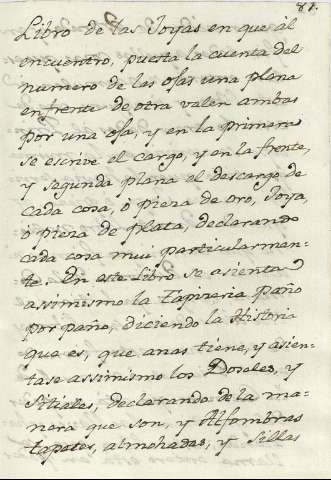 81.
Libro de las Joyas en que al
encuentro, puesta la cuenta del
numero de las ojas una plana
enfrente de otra valen ambas
por una oja, y en la primera
se escrive el cargo, y en la frente,
y segunda plana el descargo de
cada cosa, ò pieza de oro, Joya,
ò pieza de plata, declarando
cada cosa mui particularmen-
te. En este Libro se asienta
assimismo la Tapizeria paño
por paño, diciendo la Historia
que es, que anas tiene, y asien-
tase assimismo los Doseles, y
Sitiales, declarando de la ma-
nera que son, y Alfombras
tapetes, almohadas, y Sillas